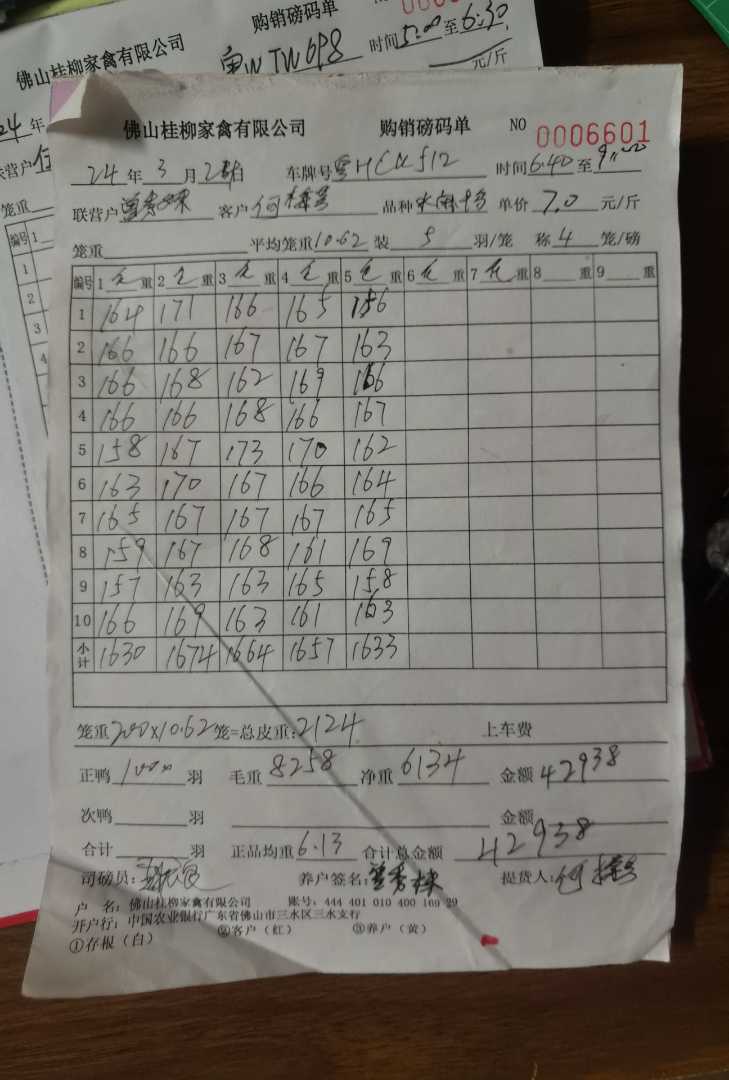 购销磅码单
佛山桂柳家禽有限公司
粤W TW698 时间5:00至6:30
元/斤
24年
笼重
编号 1
1
2
3
4
佛山桂柳家禽有限公司 购销磅码单 NO 0006601
24年3月2日 车牌号粤H 512 时间6:40至9:00
联营户曾秀 客户何 品种 单价7.0元/斤
笼重 平均笼重10.62 装5羽/笼 称4笼/磅
编号 1毛重 2毛重 3毛重 4毛重 5毛重 6毛重 7毛重 8 重 9 重
1 164 171 166 165 156
2 166 166 167 167 163
3 166 168 162 169 166
4 166 166 168 166 167
5 158 167 173 170 162
6 163 170 167 166 164
7 165 167 167 167 165
8 159 167 168 161 169
9 157 163 163 165 158
10 166 169 163 161 163
小计 1630 1674 1664 1657 1633
笼重200×10.62笼=总皮重:2124 上车费
正鸭1000羽 毛重8258 净重6134 金额42938
次鸭 羽 金额
合计 羽 正品均重6.13 合计总金额42938
司磅员: 养户签名:曾秀 提货人:何
户 名:佛山桂柳家禽有限公司 账号:444 401 010 400 169 29
开户行:中国农业银行广东省佛山市三水区三水支行
①存根(白) ②客户(红) ③养户(黄)